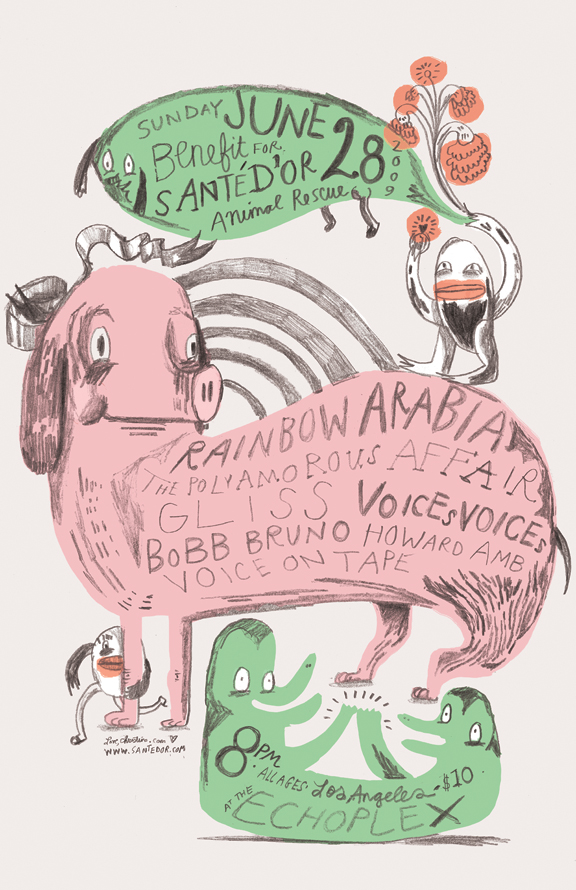 SUNDAY JUNE
Benefit FOR 28
SANTÉD'OR 2009
Animal Rescue
RAINBOW ARABIA
THE POLYAMOROUS AFFAIR
GLISS VOICESVOICES
BOBB BRUNO HOWARD AMB
VOICE ON TAPE
WWW.SANTEDOR.COM
8PM.
ALL AGES. Los Angeles. $10
AT THE ECHOPLEX